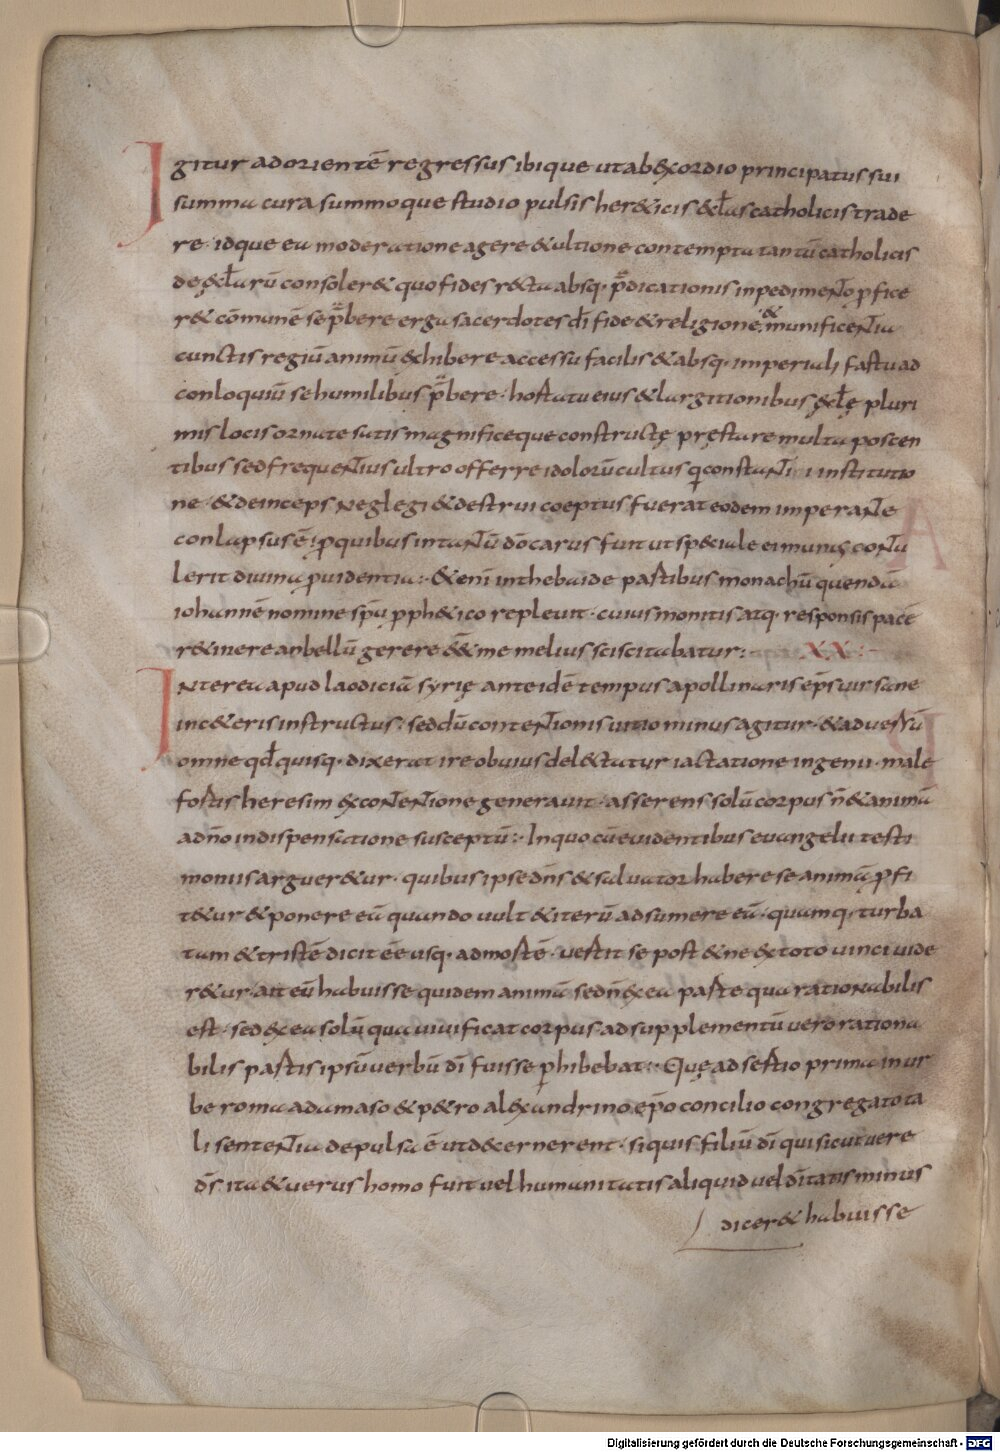 Igitur ad orientē regressus ibique ut ab exordio principatus sui
summa cura summoque studio pulsis her&icis &ctas catholicis trade
re · idque ea moderatione agere & ultione contempta tantū catholicis
de ęctarū consoler& quo fides r&ta absq · p̄dicationis inpedimento ꝓfice
r& cōmunē se p̄bere erga sacerdotes dī fide & religione & munificentia
cunctis regiū animū exhibere accessu facilis & absq · imperiali fastu ad
conloquiū se humilibus p̄bere · hortatu eius & largitionibus ęctę pluri
mis locis ornate satis magnificeque constructę pręstare multa poscen
tibus sed frequentius ultro offerre idolorū cultus qui constantini institutio
ne · & deinceps neglegi & destrui coeptus fuerat eodem imperante
conlapsus ē ꝓ quibus in tantū dō carus fuit ut speciale ei munus contu
lerit diuina ꝓuidentia :· & enī in thebaide partibus monachū quendā
iohannē nomine spū ꝓph&ico repleuit · cuius monitis atq · responsis pacē
r&inere an bellū gerere & ēme melius sciscitabatur : XX :
Interea apud laodiciā syrię ante idē tempus apollinaris eps uir sane
in c&eris instructus : sed dū contentionis uitio minus agitur · & aduersū
omne qđ quisq · dixerat ire obuius del&tatur iactatione ingenii · male
fortis heresim ex contentione generauit · asserens solū corpus n̄ & animā
a dn̄o in dispensatione susceptū :· In quo cū euidentibus euangelii testi
moniis arguer&ur · quibus ipse dn̄s & saluator habere se animā ꝓfi
t&ur & ponere eū quando uult & iterū adsumere eū · quamq · turba
tam & tristē dicit ēē usq · ad mortē · uertit se post & ne ex toto uinci uide
r&ur · ait eū habuisse quidem animā sed n̄ ex ea parte qua rationabilis
est · sed ex ea solū qua uiuificat corpus ad supplementū uero rationa
bilis partis ipsū uerbū dī fuisse ꝑhibebat :· Quę adsertio prima in ur
be roma a damaso & p&ro alexandrino epō concilio congregato ta
li sententia depulsa ē ut decernerent · si quis filiū dī qui sicut uere
ds̄ ita & uerus homo fuit uel humanitatis aliquid uel dītatis minus
dicer& habuisse
Digitalisierung gefördert durch die Deutsche Forschungsgemeinschaft - DFG